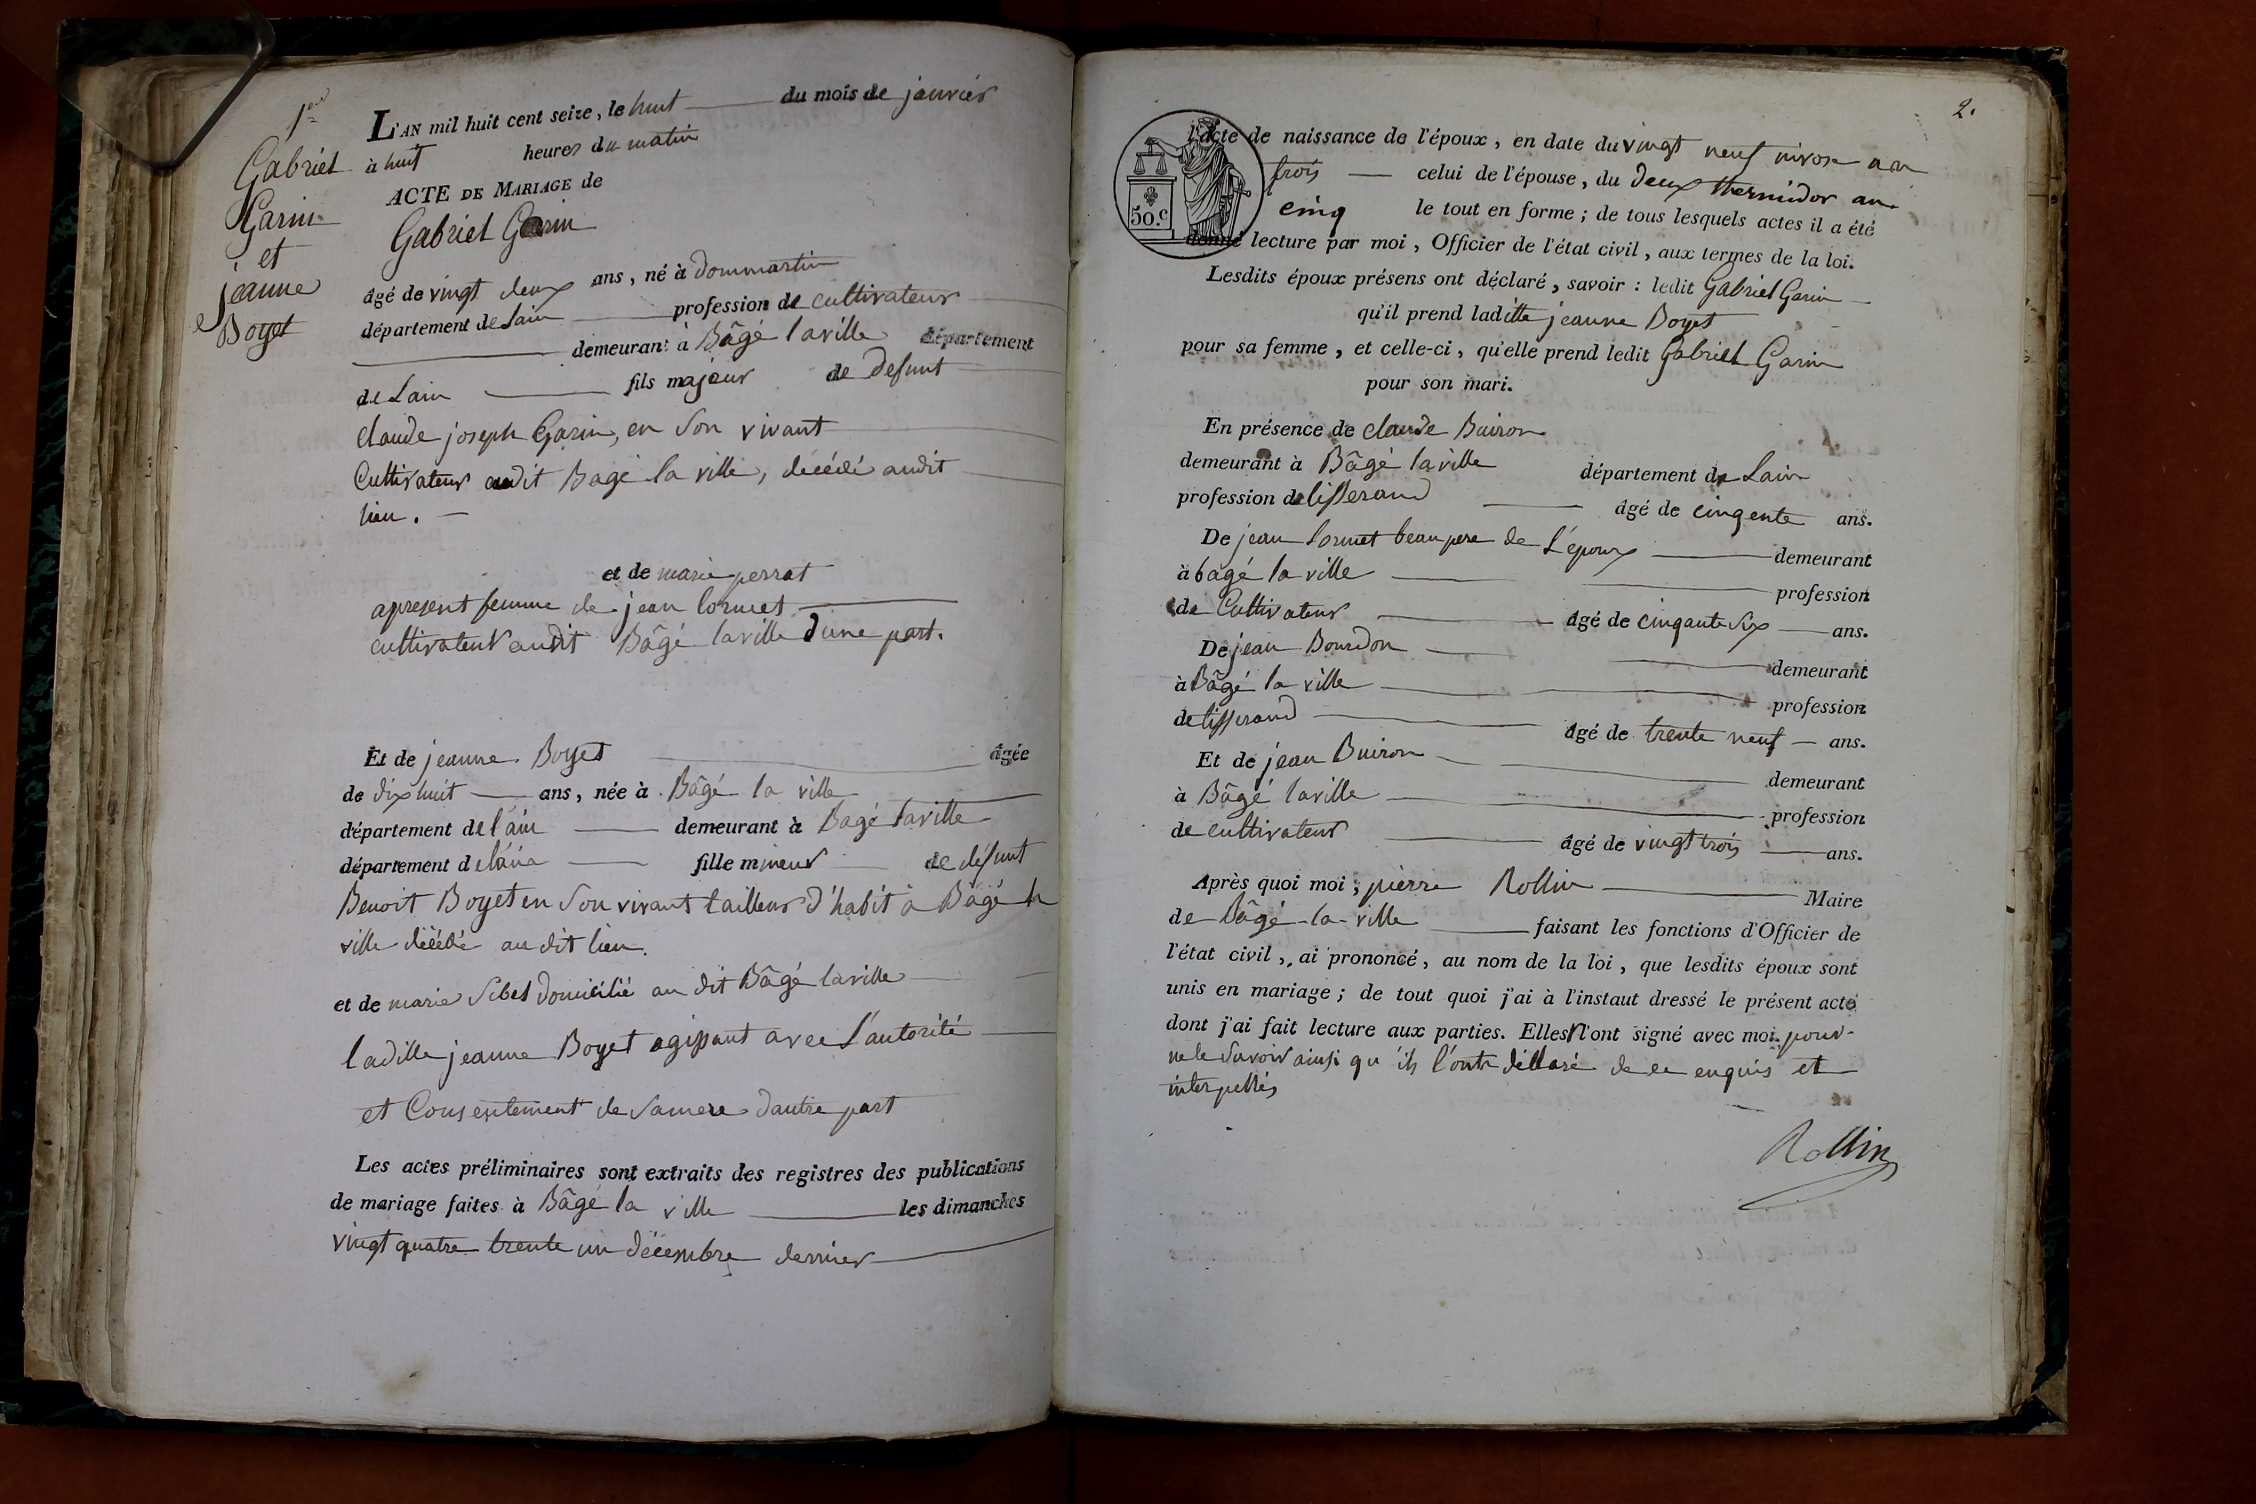 1er
Gabriel
Garin
et
jeanne
Boyet
L'AN mil huit cent seize, le huit du mois de janvier
à huit heures du matin
ACTE DE MARIAGE de
Gabriel Garin
âgé de vingt deux ans, né à dommartin
département de Lain profession de cultivateur
demeurant à Bâgé laville département
de Lain fils majeur de defunt
claude joseph Garin, en Son vivant
Cultivateur audit Bagé la ville, décédé audit
lieu.
et de marie perrat
apresent femme de jean lormet
cultivateur audit Bâgé laville dune part.
Et de jeanne Boyet âgée
de dix huit ans, née à Bâgé la ville
département de l'ain demeurant à Bagé laville
département de l'ain fille mineur de défunt
Benoit Boyet en Son vivant tailleur d'habit à Bâgé la
ville décédé au dit lieu.
et de marie Sibet domicilié au dit Bâgé laville
ladille jeanne Boyet agissant avec L'autorité
et Consentement de Samere dautre part
Les actes préliminaires sont extraits des registres des publications
de mariage faites à Bâgé la ville les dimanches
vingt quatre trente un décembre dernier
2.
50.c
l'acte de naissance de l'époux, en date du vingt neuf nivose an
trois celui de l'épouse, du deux thermidor an
cinq le tout en forme; de tous lesquels actes il a été
donné lecture par moi, Officier de l'état civil, aux termes de la loi.
Lesdits époux présens ont déclaré, savoir: ledit Gabriel Garin
qu'il prend laditte jeanne Boyet
pour sa femme, et celle-ci, qu'elle prend ledit Gabriel Garin
pour son mari.
En présence de claude Buiron
demeurant à Bâgé laville département de Lain
profession de tisserand âgé de cinqente ans.
De jean lormet beaupere de L'époux demeurant
à bagé la ville profession
de Cultivateur âgé de cinqante Six ans.
De jean Bourdon demeurant
à Bâgé la ville profession
de tisserand âgé de trente neuf ans.
Et de jean Buiron demeurant
à Bâgé laville profession
de cultivateur âgé de vingt trois ans.
Après quoi moi, pierre Rollin Maire
de Bâgé-la-ville faisant les fonctions d'Officier de
l'état civil, ai prononcé, au nom de la loi, que lesdits époux sont
unis en mariage; de tout quoi j'ai à l'instaut dressé le présent acte
dont j'ai fait lecture aux parties. Elles n'ont signé avec moi. pour
ne le Savoir ainsi qu'ils l'ont déllaré de ce enquis et
interpellés
Rollin